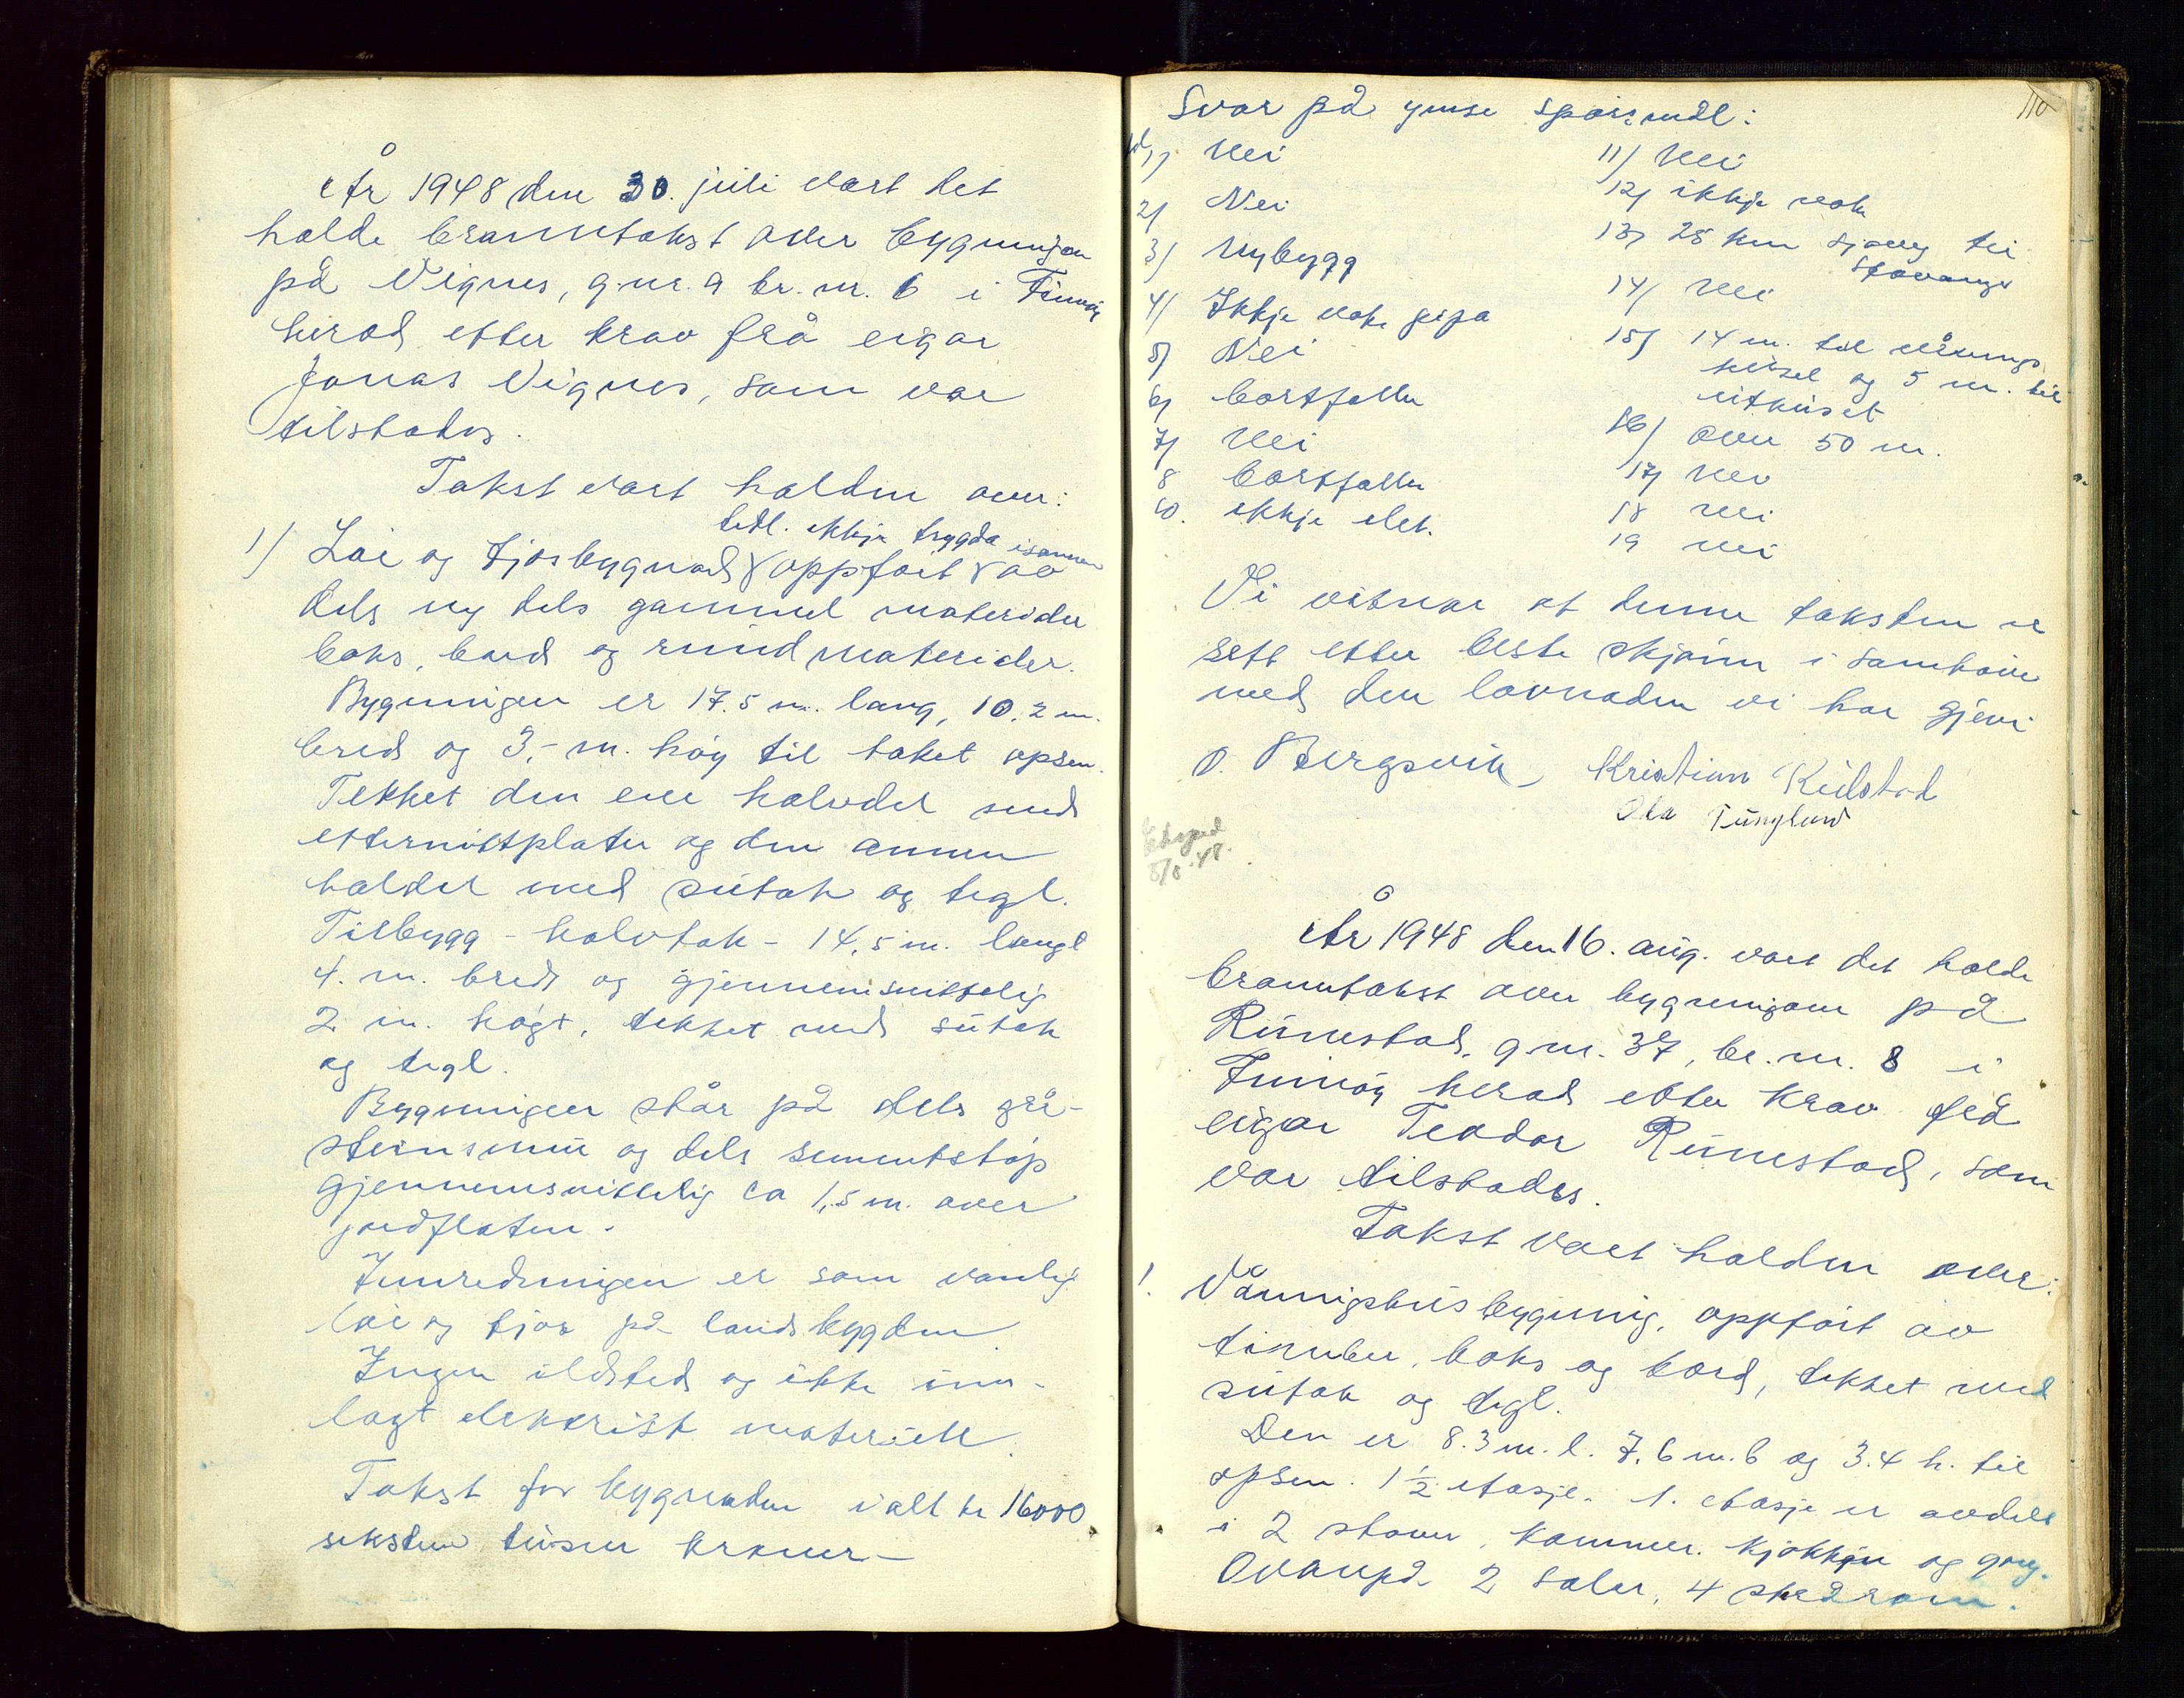 År 1948 den 30. juli vart det
halde branntakst over bygningen
på Vignes, g.nr. 9 br.nr. 6 i Finnøy
herad etter krav frå eigar
Jonas Vignes, som var
tilstades.
Takst vart halden over:
tidl. ikkje trygda isammen
1) Løe og fjosbygnad oppført av
dels ny dels gammel materialer
boks, bord og rundmaterialer.
Bygningen er 17.5 m. lang, 10.2 m.
bred og 3,- m. høy til taket opsen.
Tekket den ene halvdel med
etternittplater og den annen
haldel med sutak og tegl.
Tilbygg - halvtak - 14,5 m. langt
4. m. bredt og gjennemsnittelig
2 m. høgt, tekket med sutak
og tegl.
Bygningen står på dels grå-
steinsmur og dels sementstøp
gjennemsnittelig ca 1,5 m. over
jordflaten.
Innredningen er som vanlig
løe og fjos på landsbygden
Ingen ildsted og ikke inn-
lagt elektrisk materiell.
Takst for bygnaden ialt kr 16000
seksten tusen kroner-
110
Svar på ymse spørsmål:
1) Nei
2) Nei
3) Nybygg
4) Ikkje noke pipa
5) Nei
6) bortfaller
7) Nei
8 bortfaller
10. ikkje elek.
11) Nei
12) ikkje noke
13) 28 km sjøveg til
Stavanger
14) Nei
15) 14 m. til vånings
huset og 5 m. til
uthuset
16) over 50 m.
17) Nei
18 Nei
19 Nei
Vi vitner at denne taksten er
sett etter beste skjønn i samhøve
med den lovnaden vi har gjeve
O. Bergsvik Kristian Kulstad
Ola Tungland
Eksped.
5/8.48.
År 1948 den 16. aug. vart det halde
branntakst over bygningane på
Runestad, g.nr. 37, br.nr. 8 i
Finnøy herad etter krav frå
eigar Teodor Runestad, som
var tilstades.
Takst vart halden over:
1. Våningshusbygning, oppført av
timber, boks og bord, tekket med
sutak og tegl.
Den er 8.3 m. l. 7.6 m. b og 3.4 h. til
opsen. 1 ½ etasje. 1. etasje er avdelt
i 2 stover, kammer, kjøkken og gang.
Ovanpå 2 saler, 4 skrårom.